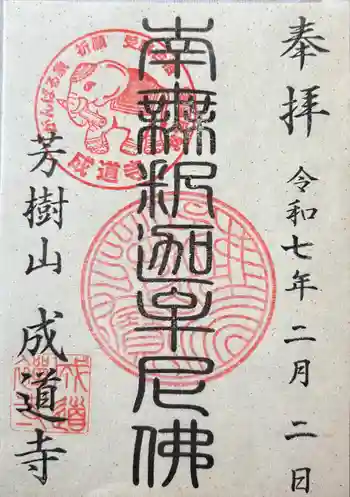 奉拝 令和七年二月二日
南無釈迦牟尼佛
芳樹山 成道寺
成道寺